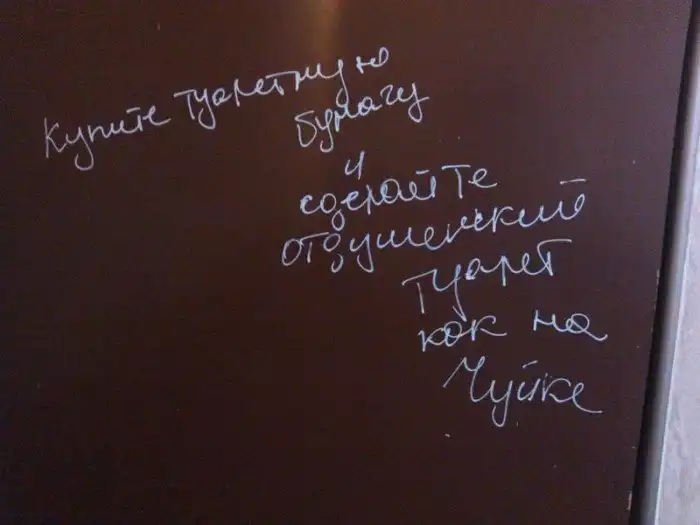 Купите туалетную
бумагу
и
сделайте
отдушенский
туалет
как на
Чуйке